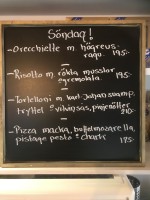 Söndag!
- Orecchiette m högrevs-
ragu. 195:-
- Risotto m rökta musslor
& gremolata. 195:-
- Tortelloni m. karl-johansvamp,
tryffel & vitvinsås, pinjenötter
210:-
- Pizza macka, buffelmozzarella,
pistage pesto & chark
175:-